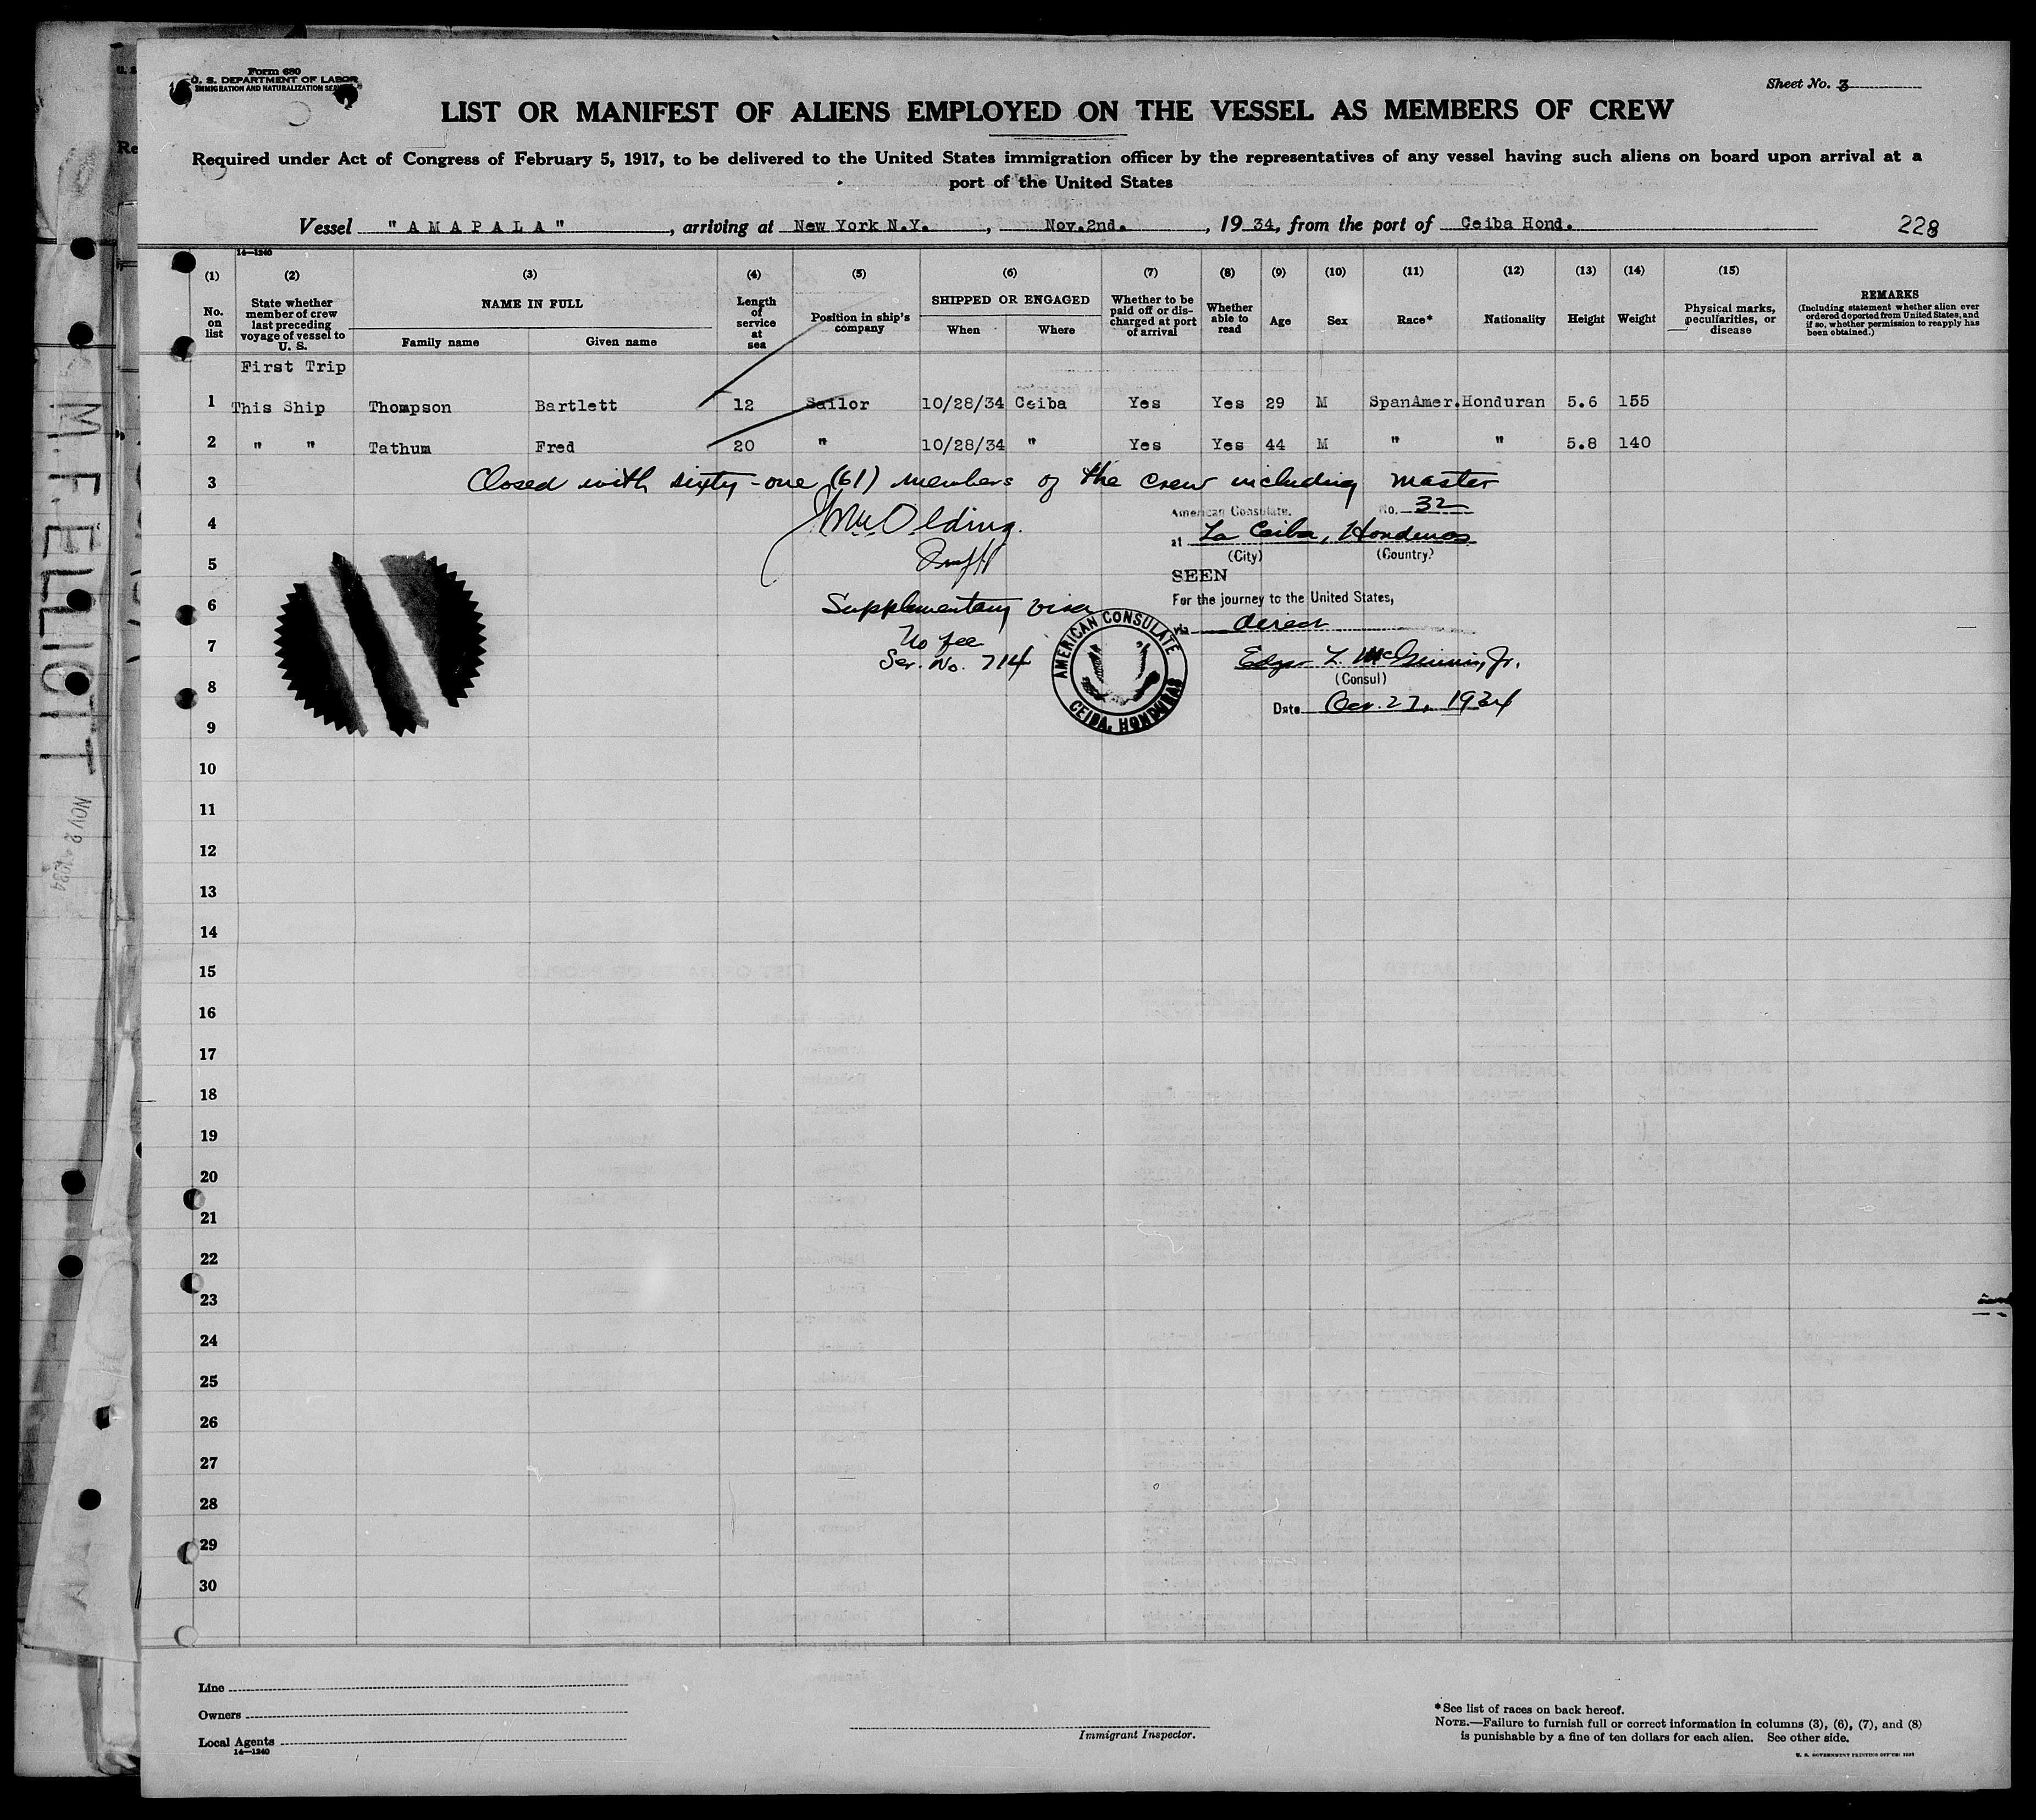 Form 680
U. S. DEPARTMENT OF LABOR
IMMIGRATION AND NATURALIZATION
Sheet No. 3
LIST OR MANIFEST OF ALIENS EMPLOYED ON THE VESSEL AS MEMBERS OF CREW
Required under Act of Congress of February 5, 1917, to be delivered to the United States immigration officer by the representatives of any vessel having such aliens on board upon arrival at a
port of the United States
Vessel "AMAPALA", arriving at New York N.Y., Nov.2nd., 1934, from the port of Ceiba Hond.
228
14—1240
(1) (2) (3) (4) (5) (6) (7) (8) (9) (10) (11) (12) (13) (14) (15)
No. on list
State whether member of crew last preceding voyage of vessel to U. S.
NAME IN FULL
Family name
Given name
Length of service at sea
Position in ship's company
SHIPPED OR ENGAGED
When
Where
Whether to be paid off or discharged at port of arrival
Whether able to read
Age
Sex
Race*
Nationality
Height
Weight
Physical marks, peculiarities, or disease
REMARKS
(Including statement whether alien ever ordered deported from United States, and if so, whether permission to reapply has been obtained.)
First Trip
1 This Ship Thompson Bartlett 12 Sailor 10/28/34 Ceiba Yes Yes 29 M SpanAmer. Honduran 5.6 155
2 " " Tathum Fred 20 " 10/28/34 " Yes Yes 44 M " " 5.8 140
3 Closed with sixty-one (61) members of the crew including master
4
American Consulate. No. 32
at La Ceiba, Honduras
(City) (Country)
5
SEEN
6 Supplementary visa
For the journey to the United States,
via direct
7 No fee
Ser. No. 714
AMERICAN CONSULATE
CEIBA, HONDURAS
Edgar L. McGinnis, Jr.
(Consul)
8
Date Oct. 27, 1934
9
10
11
12
13
14
15
16
17
18
19
20
21
22
23
24
25
26
27
28
29
30
Line
Owners
Local Agents
14—1240
Immigrant Inspector.
*See list of races on back hereof.
NOTE.—Failure to furnish full or correct information in columns (3), (6), (7), and (8)
is punishable by a fine of ten dollars for each alien. See other side.
M. F. ELLIOTT
NOV 2 1934